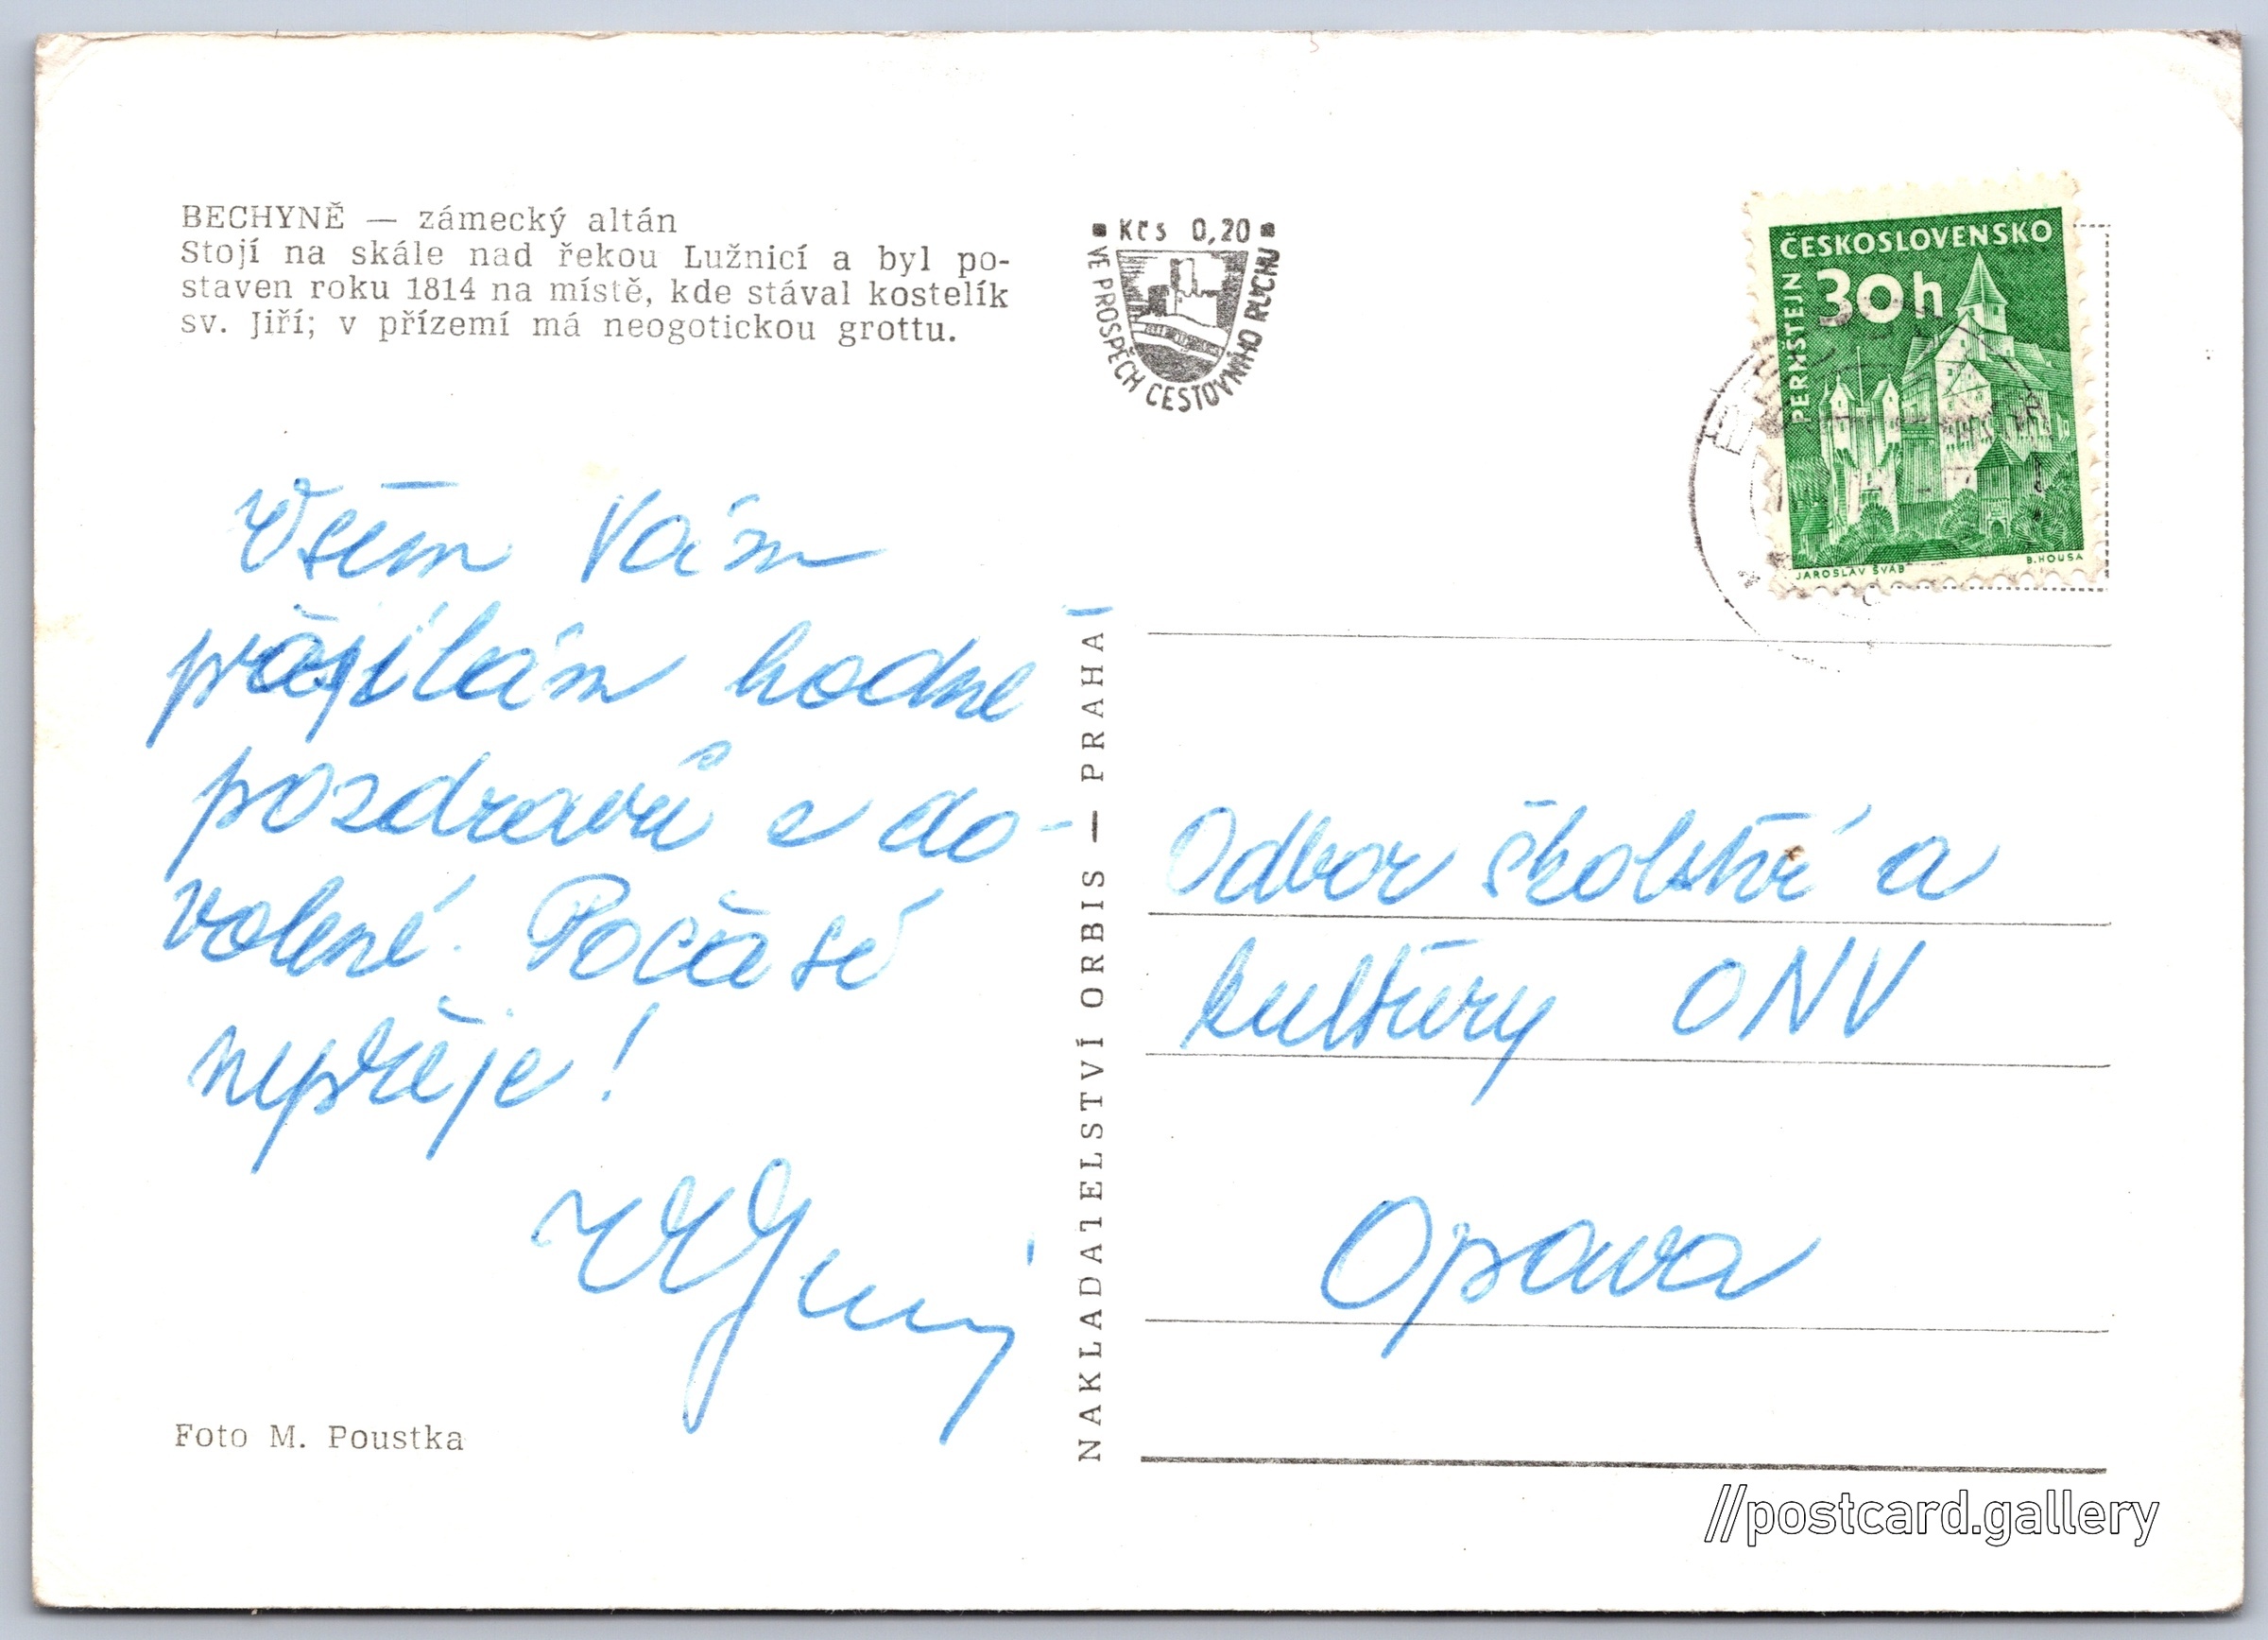 BECHYNĚ — zámecký altán
Stojí na skále nad řekou Lužnicí a byl po-
staven roku 1814 na místě, kde stával kostelík
sv. Jiří; v přízemí má neogotickou grottu.
Kčs 0,20
VE PROSPĚCH CESTOVNÍHO RUCHU
ČESKOSLOVENSKO
30h
PERNŠTEJN
JAROSLAV ŠVÁB
B. HOUSA
Všem Vám
přisílám hodně
pozdravů z do-
volené. Počasí
nepřeje!
Foto M. Poustka
NAKLADATELSTVÍ ORBIS — PRAHA
Odbor školství a
kultury ONV
Opava
//postcard.gallery